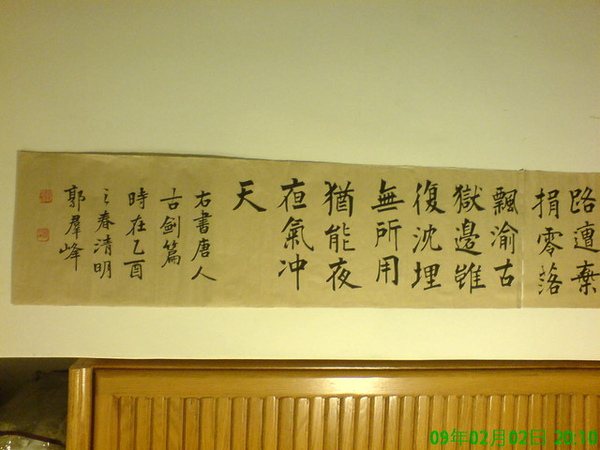 路遭棄
捐零落
飄渝古
獄邊雖
復沈埋
無所用
猶能夜
亱氣冲
天
右書唐人
古劍篇
時在乙酉
之春清明
郭羣峰
09年02月02日 20:10